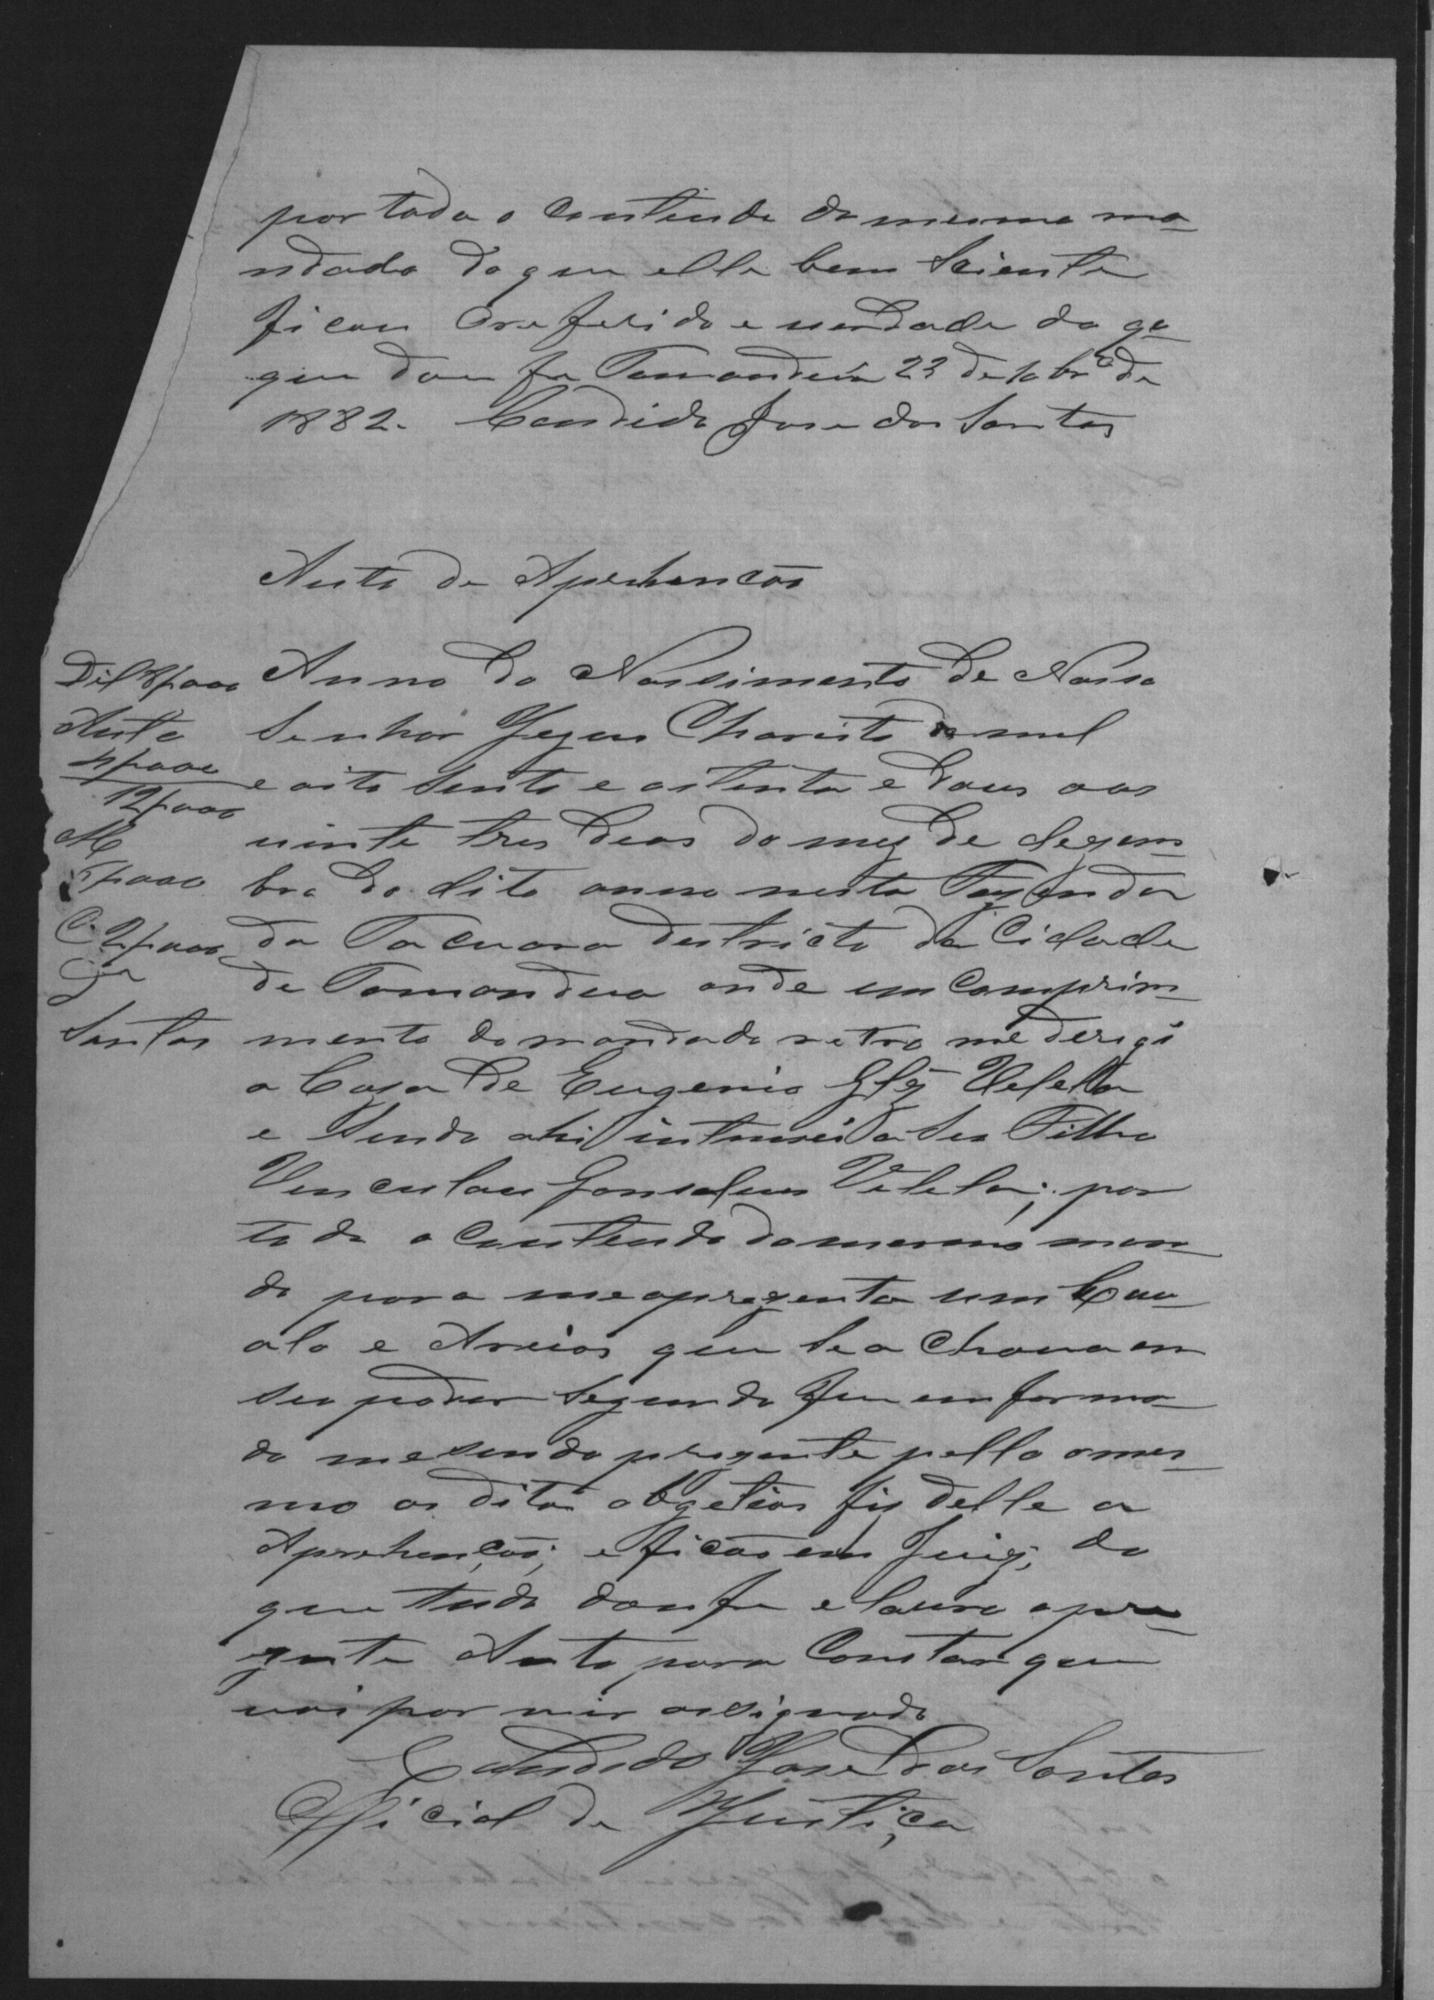 por todo o contiudo do mesmo ma-
ndado do que elle bem Sciente
ficou O referido e verdade do q̃
que dou fe Tamanduá 23 de 10brº de
1882. Candido Jose dos Santos
Auto de Aprehencão
Anno do Nassimento de Nosso
Senhor Jezus Christo de mil
e oito sento e oitenta e dous aos
vinte tres dias do mez de dezem-
bro do dito anno nesta Fazenda
da Tacuara destricto da Cidade
de Tamandua onde em comprim-
mento do mandado retro me derigi
a Caza de Eugenio Glz Vilella
e Sendo ahi intimei a Seu Filho
Venculau Gonsalves Vilela; por
todo o contiudo do mesmo man-
do para me aprezenta um Cava-
alo e Areios que se a chava em
seu poder Segundo fui enforma-
do me sendo prezente pello mes-
mo os ditos obgetios fiz delle a
Aprehencão; e ficão em Juizº, do
que tudo dou fe e lavro o pre-
zente Auto para Constar que
vai por mim assignado
Candido Jose dos Santos
Official de Justiça
Dil 8$000
Auto
4$000
12$000
M
C. 2$000
Santos